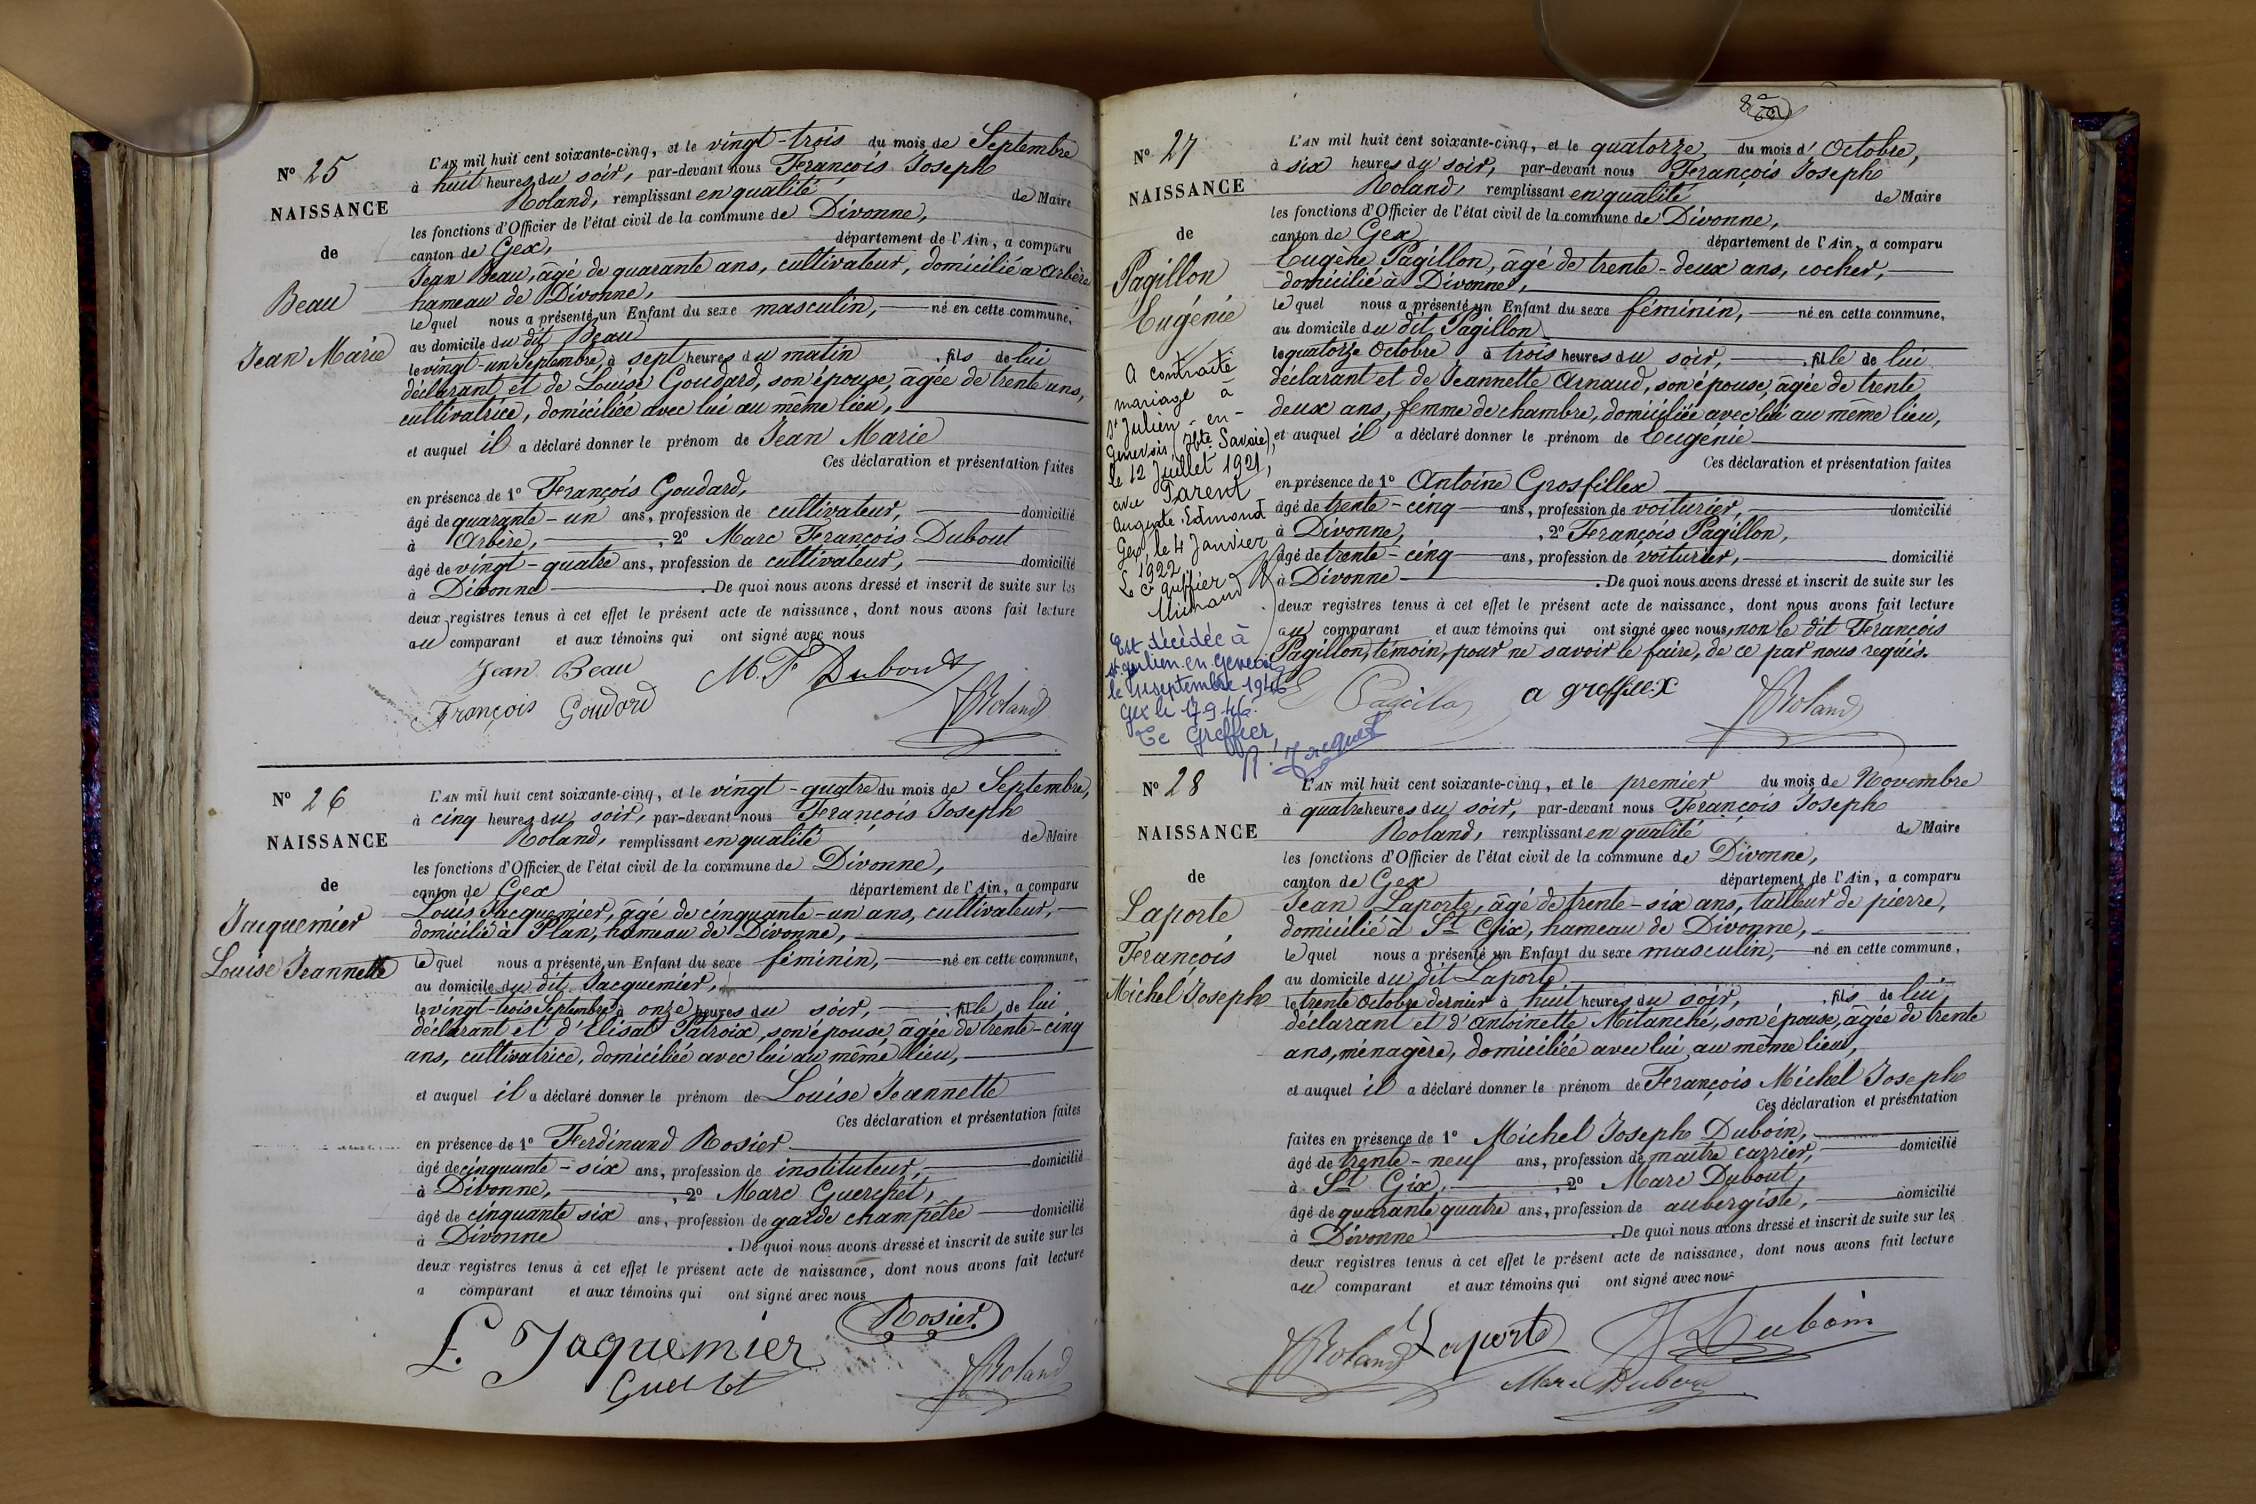 N° 25
NAISSANCE
de
Beau
Jean Marie
L'AN mil huit cent soixante-cinq, et le vingt-trois du mois de Septembre
à huit heures du soir, par-devant nous François Joseph
Roland, remplissant en qualité de Maire
les fonctions d'Officier de l'état civil de la commune de Divonne,
canton de Gex, département de l'Ain, a comparu
Jean Beau, âgé de quarante ans, cultivateur, domicilié à Arbère
hameau de Divonne,
lequel nous a présenté un Enfant du sexe masculin, né en cette commune,
au domicile du dit Beau
le vingt-un Septembre à sept heures du matin, fils de lui
déclarant et de Louise Goudard, son épouse, âgée de trente ans,
cultivatrice, domiciliée avec lui au même lieu,
et auquel il a déclaré donner le prénom de Jean Marie
Ces déclaration et présentation faites
en présence de 1° François Goudard,
âgé de quarante-un ans, profession de cultivateur, domicilié
à Arbère, 2° Marc François Dubout
âgé de vingt-quatre ans, profession de cultivateur, domicilié
à Divonne. De quoi nous avons dressé et inscrit de suite sur les
deux registres tenus à cet effet le présent acte de naissance, dont nous avons fait lecture
au comparant et aux témoins qui ont signé avec nous
Jean Beau M. F Dubout
François Goudard FRoland
N° 26
NAISSANCE
de
Jacquemier
Louise Jeannette
L'AN mil huit cent soixante-cinq, et le vingt-quatre du mois de Septembre,
à cinq heures du soir, par-devant nous François Joseph
Roland, remplissant en qualité de Maire
les fonctions d'Officier de l'état civil de la commune de Divonne,
canton de Gex département de l'Ain, a comparu
Louis Jacquemier, âgé de cinquante-un ans, cultivateur,
domicilié à Plan, hameau de Divonne,
lequel nous a présenté un Enfant du sexe féminin, né en cette commune,
au domicile du dit Jacquemier,
le vingt-trois Septembre à onze heures du soir, fille de lui
déclarant et d'Elisa Patroix, son épouse, âgée de trente-cinq
ans, cultivatrice, domiciliée avec lui au même lieu,
et auquel il a déclaré donner le prénom de Louise Jeannette
Ces déclaration et présentation faites
en présence de 1° Ferdinand Rosier
âgé de cinquante-six ans, profession de instituteur, domicilié
à Divonne, 2° Marc Guerchet,
âgé de cinquante six ans, profession de garde champêtre domicilié
à Divonne. De quoi nous avons dressé et inscrit de suite sur les
deux registres tenus à cet effet le présent acte de naissance, dont nous avons fait lecture
a comparant et aux témoins qui ont signé avec nous
Rosier.
L. Jaquemier FRoland
8
N° 27
NAISSANCE
de
Pagillon
Eugénie
A contracté
mariage à
St Julien-en-
Genevois (Hte Savoie),
le 12 Juillet 1921,
avec Parent
Auguste Edmond
Gex, le 4 Janvier
1922.
Le Cis greffier
Est décédée à
St Julien-en-Genevois
le 11 septembre 1946
Gex le 17 9 46.
Le Greffier,
L'AN mil huit cent soixante-cinq, et le quatorze du mois d'Octobre,
à six heures du soir, par-devant nous François Joseph
Roland, remplissant en qualité de Maire
les fonctions d'Officier de l'état civil de la commune de Divonne,
canton de Gex département de l'Ain, a comparu
Eugène Pagillon, âgé de trente-deux ans, cocher,
domicilié à Divonne,
lequel nous a présenté un Enfant du sexe féminin, né en cette commune,
au domicile du dit Pagillon
le quatorze Octobre à trois heures du soir, fille de lui
déclarant et de Jeannette Arnaud, son épouse, âgée de trente
deux ans, femme de chambre, domiciliée avec lui au même lieu,
et auquel il a déclaré donner le prénom de Eugénie
Ces déclaration et présentation faites
en présence de 1° Antoine Grosfillex
âgé de trente-cinq ans, profession de voiturier, domicilié
à Divonne, 2° François Pagillon,
âgé de trente-cinq ans, profession de voiturier, domicilié
à Divonne. De quoi nous avons dressé et inscrit de suite sur les
deux registres tenus à cet effet le présent acte de naissance, dont nous avons fait lecture
au comparant et aux témoins qui ont signé avec nous, non le dit François
Pagillon, témoin, pour ne savoir le faire, de ce par nous requis.
FRoland
N° 28
NAISSANCE
de
Laporte
François
Michel Joseph
L'AN mil huit cent soixante-cinq, et le premier du mois de Novembre
à quatre heures du soir, par-devant nous François Joseph
Roland, remplissant en qualité de Maire
les fonctions d'Officier de l'état civil de la commune de Divonne,
canton de Gex département de l'Ain, a comparu
Jean Laporte, âgé de trente-six ans, tailleur de pierre,
domicilié à St Gix, hameau de Divonne,
lequel nous a présenté un Enfant du sexe masculin, né en cette commune,
au domicile du dit Laporte
le trente Octobre dernier à huit heures du soir, fils de lui
déclarant et d'Antoinette Mitanché, son épouse, âgée de trente
ans, ménagère, domiciliée avec lui au même lieu,
et auquel il a déclaré donner le prénom de François Michel Joseph
Ces déclaration et présentation
faites en présence de 1° Michel Joseph Duboin,
âgé de trente-neuf ans, profession de maître carrier, domicilié
à St Gix, 2° Marc Dubout,
âgé de quarante quatre ans, profession de aubergiste, domicilié
à Divonne. De quoi nous avons dressé et inscrit de suite sur les
deux registres tenus à cet effet le présent acte de naissance, dont nous avons fait lecture
au comparant et aux témoins qui ont signé avec nous
FRoland Laporte J Duboin
Marc Dubout